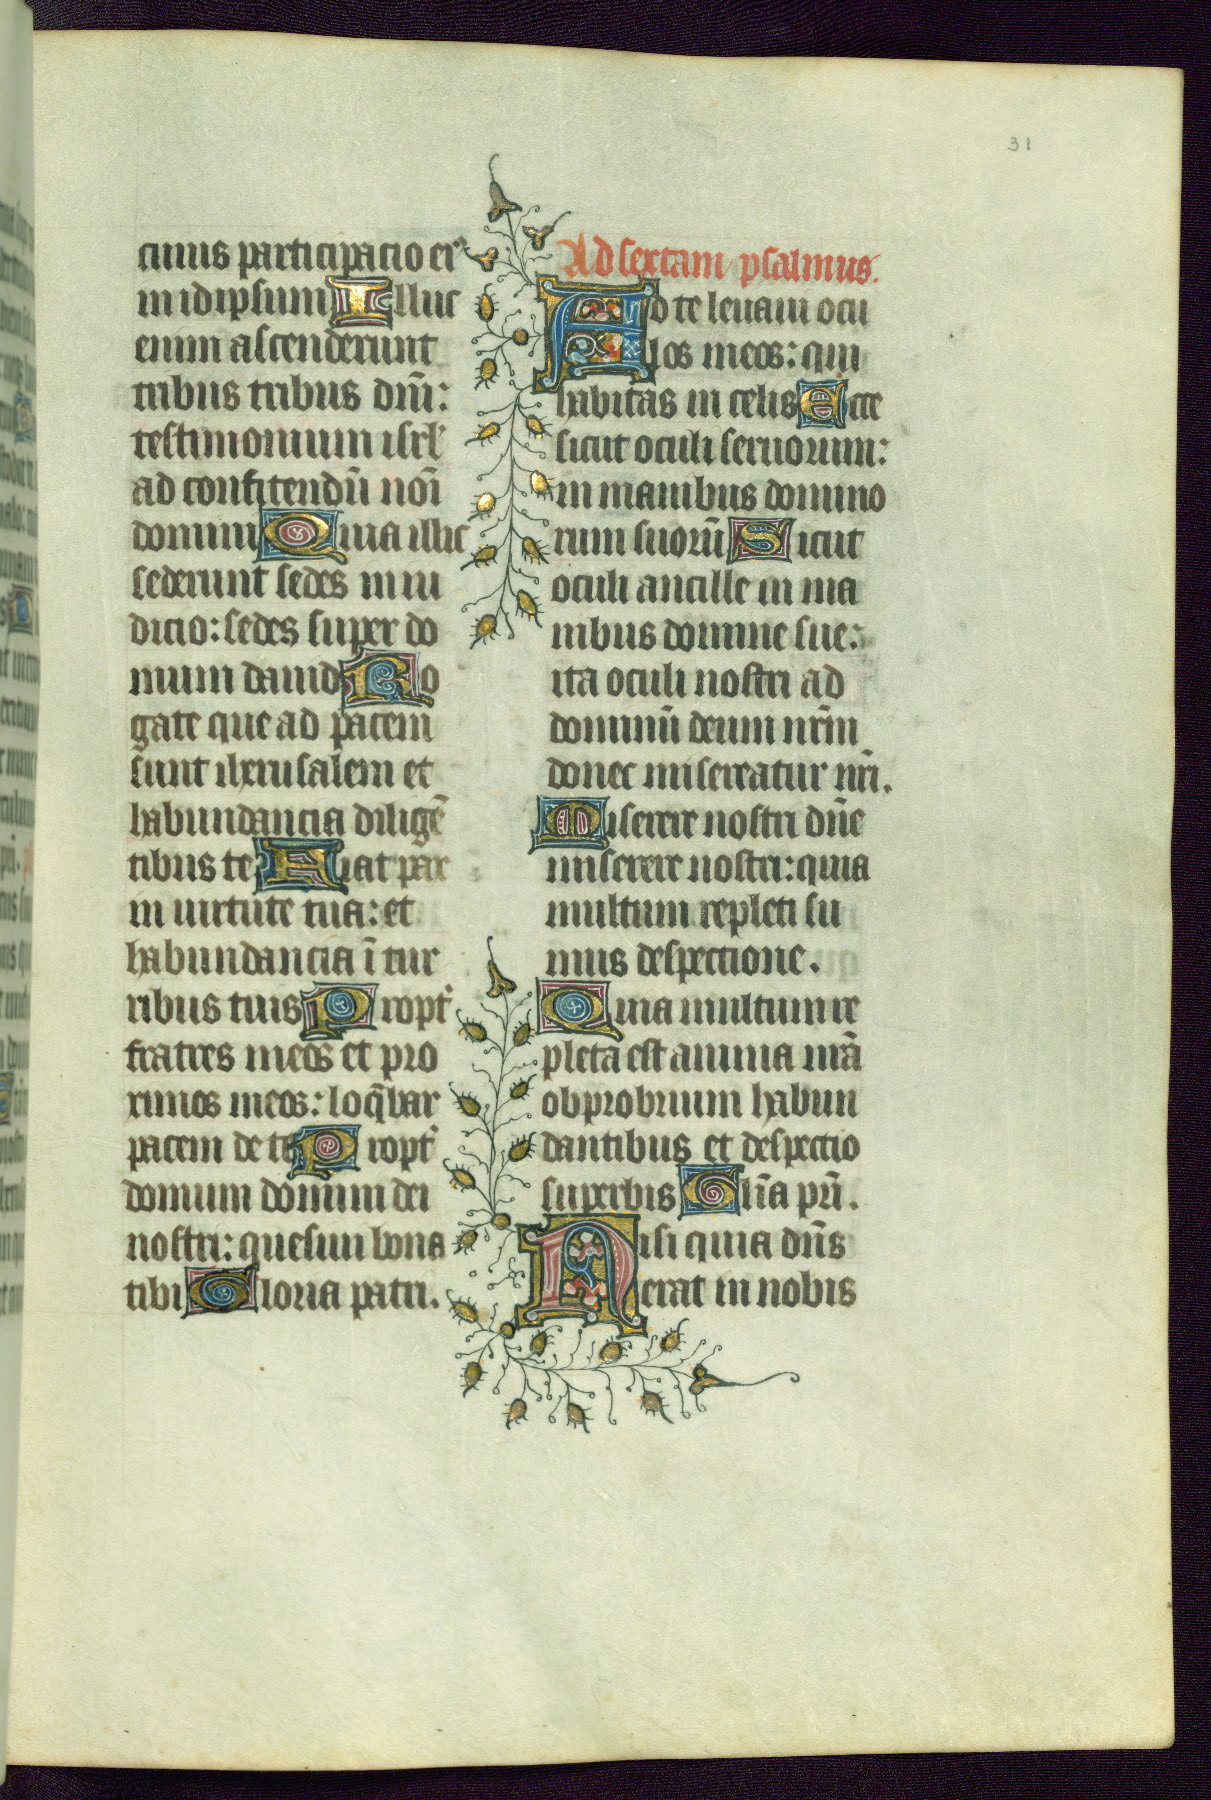 31
cuius participacio eiꝰ
in idipsum Illuc
enim ascenderunt
tribus tribus dñi:
testimonium isrl'
ad confitendū noī
domini Quia illic
sederunt sedes in iu
dicio: sedes super do
mum dauid Ro
gate que ad pacem
sunt iherusalem et
habundancia diligē
tibus te Fiat pax
in uirtute tua: et
habundancia ī tur
ribus tuis Propt'
fratres meos et pro
ximos meos: loq̄bar
pacem de te Propt'
domum domini dei
nostri: quesiui bona
tibi Gloria patri.
Ad sextam psalmus.
Ad te leuaui ocu
los meos: qui
habitas in celis Ecce
sicut oculi seruorum:
in manibus domino
rum suorū Sicut
oculi ancille in ma
nibus domine sue:
ita oculi nostri ad
dominū deum nr̄m
donec misereatur nr̄i.
Miserere nostri dn̄e
miserere nostri: quia
multum repleti su
mus despectione.
Quia multum re
pleta est anima nr̄a
obprobrium habun
dantibus et despectio
superbis Glīa pr̄i.
Nisi quia dn̄s
erat in nobis